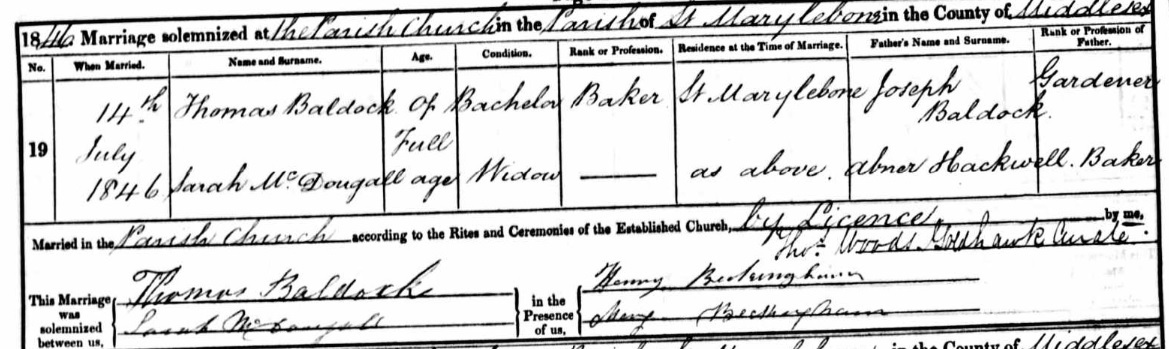 1846 Marriage solemnized at the Parish Church in the Parish of St Marylebone in the County of Middlesex
No. When Married. Name and Surname. Age. Condition. Rank or Profession. Residence at the Time of Marriage. Father's Name and Surname. Rank or Profession of Father.
19
14th July 1846
Thomas Baldock Of Bachelor Baker St Marylebone Joseph Baldock. Gardener
Full
Sarah McDougall age Widow — as above. Abner Hackwell. Baker
Married in the Parish Church according to the Rites and Ceremonies of the Established Church, by Licence by me,
Thos. Woods Goldhawk Curate.
This Marriage was solemnized between us, Thomas Baldock
Sarah McDougall
in the Presence of us, Henry Beckingham
Mary Beckingham
in the County of Middlesex